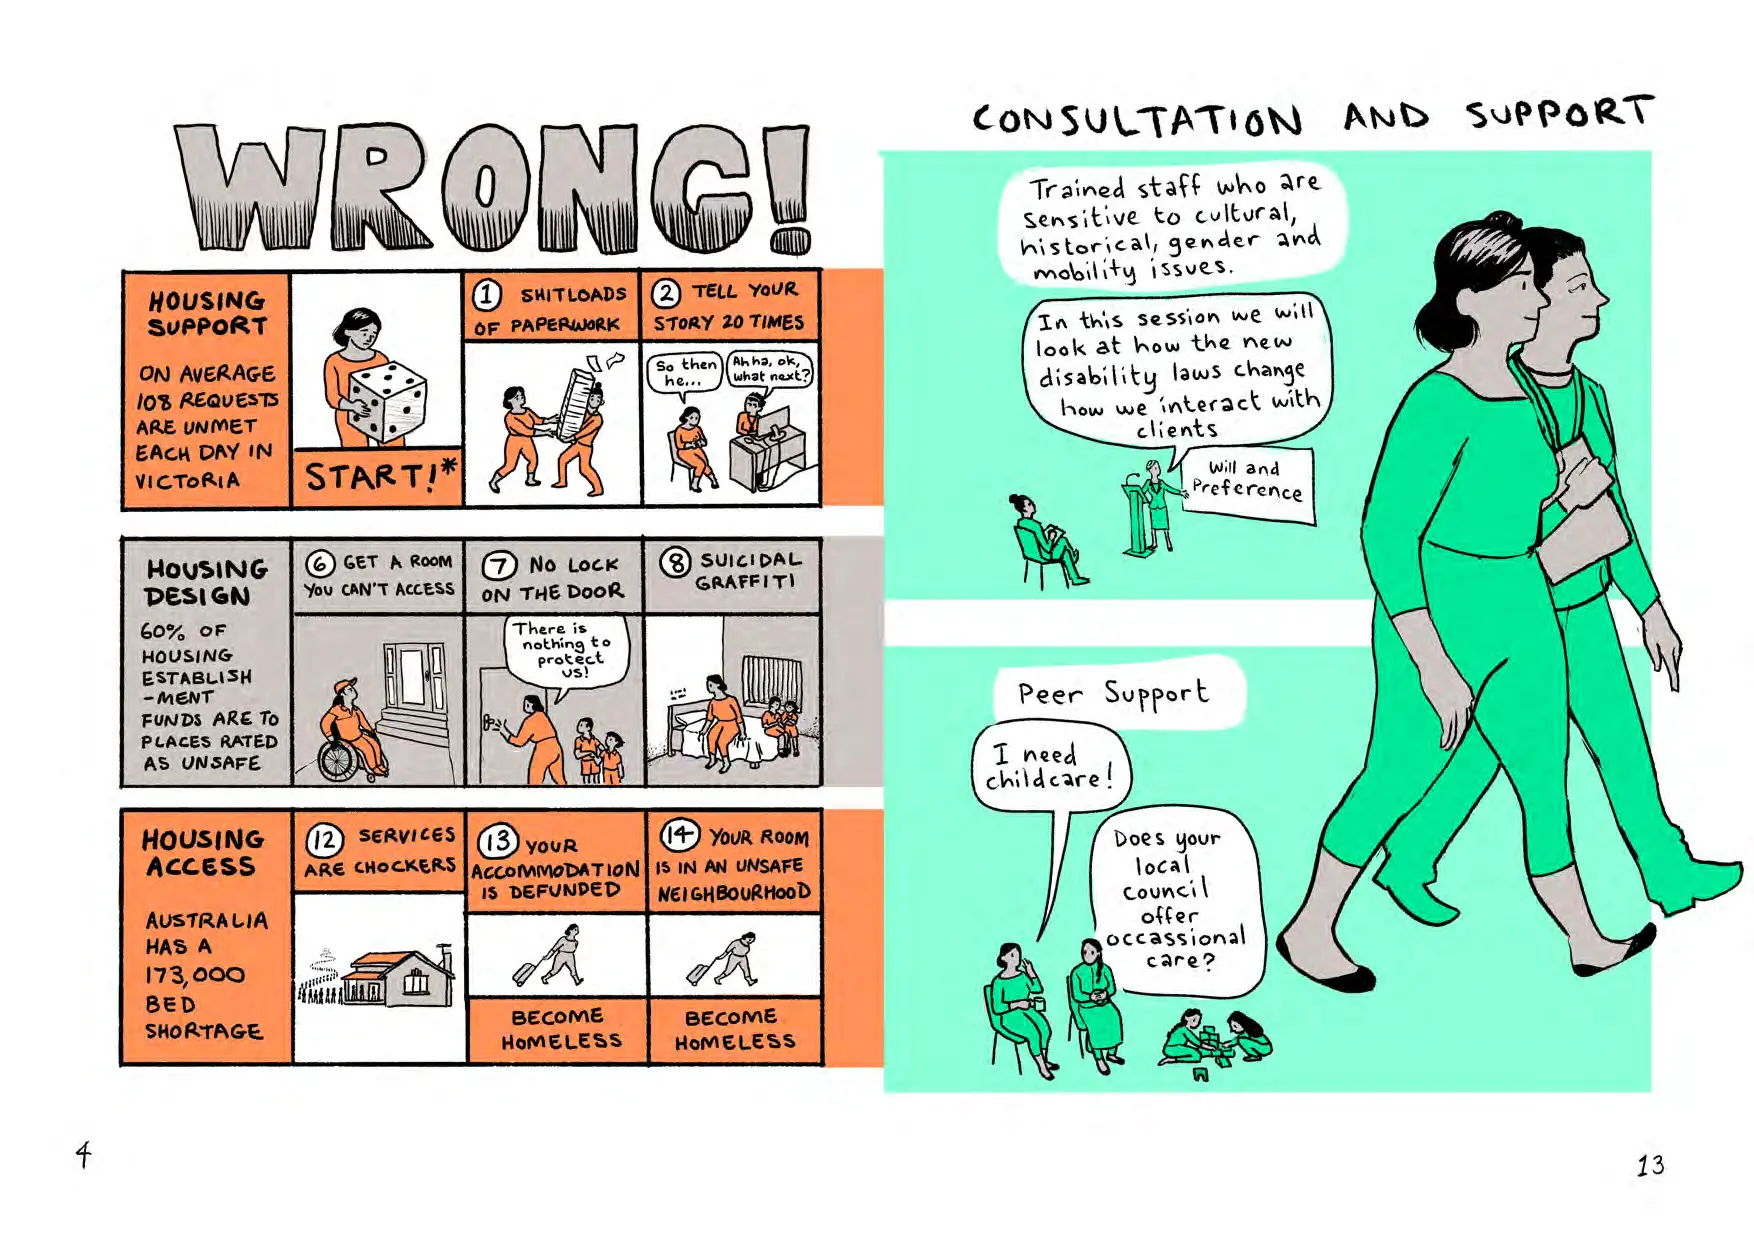 WRONG!
HOUSING
SUPPORT
ON AVERAGE
108 REQUESTS
ARE UNMET
EACH DAY IN
VICTORIA
START!*
1 SHITLOADS
OF PAPERWORK
2 TELL YOUR
STORY 20 TIMES
So then
he...
Ah ha, ok,
what next?
HOUSING
DESIGN
60% OF
HOUSING
ESTABLISH
-MENT
FUNDS ARE TO
PLACES RATED
AS UNSAFE
6 GET A ROOM
YOU CAN'T ACCESS
7 NO LOCK
ON THE DOOR
There is
nothing to
protect
us!
8 SUICIDAL
GRAFFITI
HOUSING
ACCESS
AUSTRALIA
HAS A
173,000
BED
SHORTAGE
12 SERVICES
ARE CHOCKERS
13 YOUR
ACCOMMODATION
IS DEFUNDED
BECOME
HOMELESS
14 YOUR ROOM
IS IN AN UNSAFE
NEIGHBOURHOOD
BECOME
HOMELESS
4
CONSULTATION AND SUPPORT
Trained staff who are
sensitive to cultural,
historical, gender and
mobility issues.
In this session we will
look at how the new
disability laws change
how we interact with
clients
Will and
Preference
Peer Support
I need
childcare!
Does your
local
council
offer
occassional
care?
13